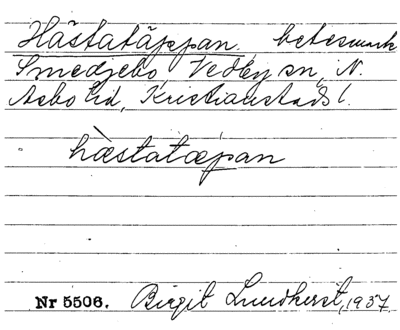 Hästatäppan. betesmark
Smedjebo, Vedby sn, N.
Åsbo hd, Kristianstads l.
hæstatæpan
Nr 5506. Birgit Lundkvist, 1937.